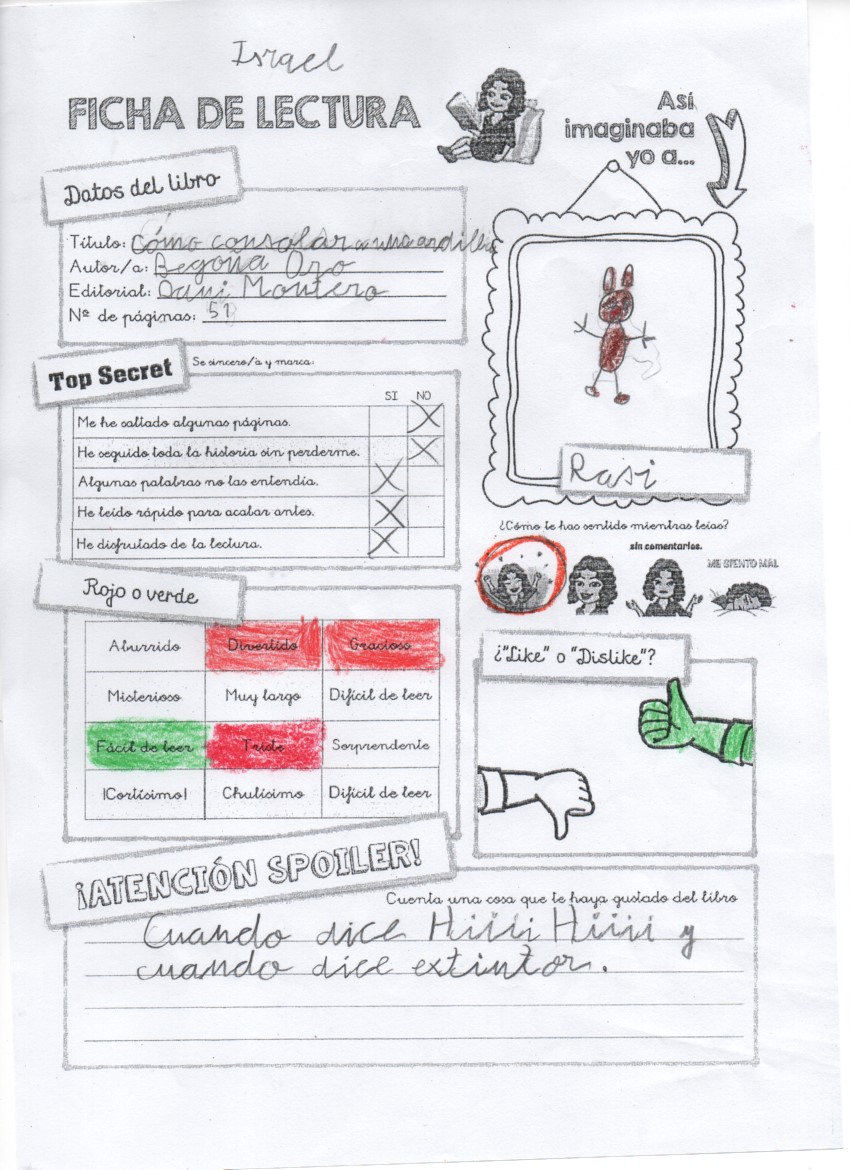 Israel
FICHA DE LECTURA
Así
imaginaba
yo a...
Datos del libro
Título: Cómo consolar a una ardilla
Autor/a: Begoña Oro
Editorial: Dani Montero
Nº de páginas: 51
Rasi
Top Secret
Se sincero/a y marca:
SI NO
Me he saltado algunas páginas. X
He seguido toda la historia sin perderme. X
Algunas palabras no las entendía. X
He leído rápido para acabar antes. X
He disfrutado de la lectura. X
¿Cómo te has sentido mientras leías?
sin comentarios.
ME SIENTO MAL
Rojo o verde
Aburrido Divertido Gracioso
Misterioso Muy largo Difícil de leer
Fácil de leer Triste Sorprendente
¡Cortísimo! Chulísimo Difícil de leer
¿"Like" o "Dislike"?
¡ATENCIÓN SPOILER!
Cuenta una cosa que te haya gustado del libro
Cuando dice Hiiii Hiiii y
cuando dice extintor.